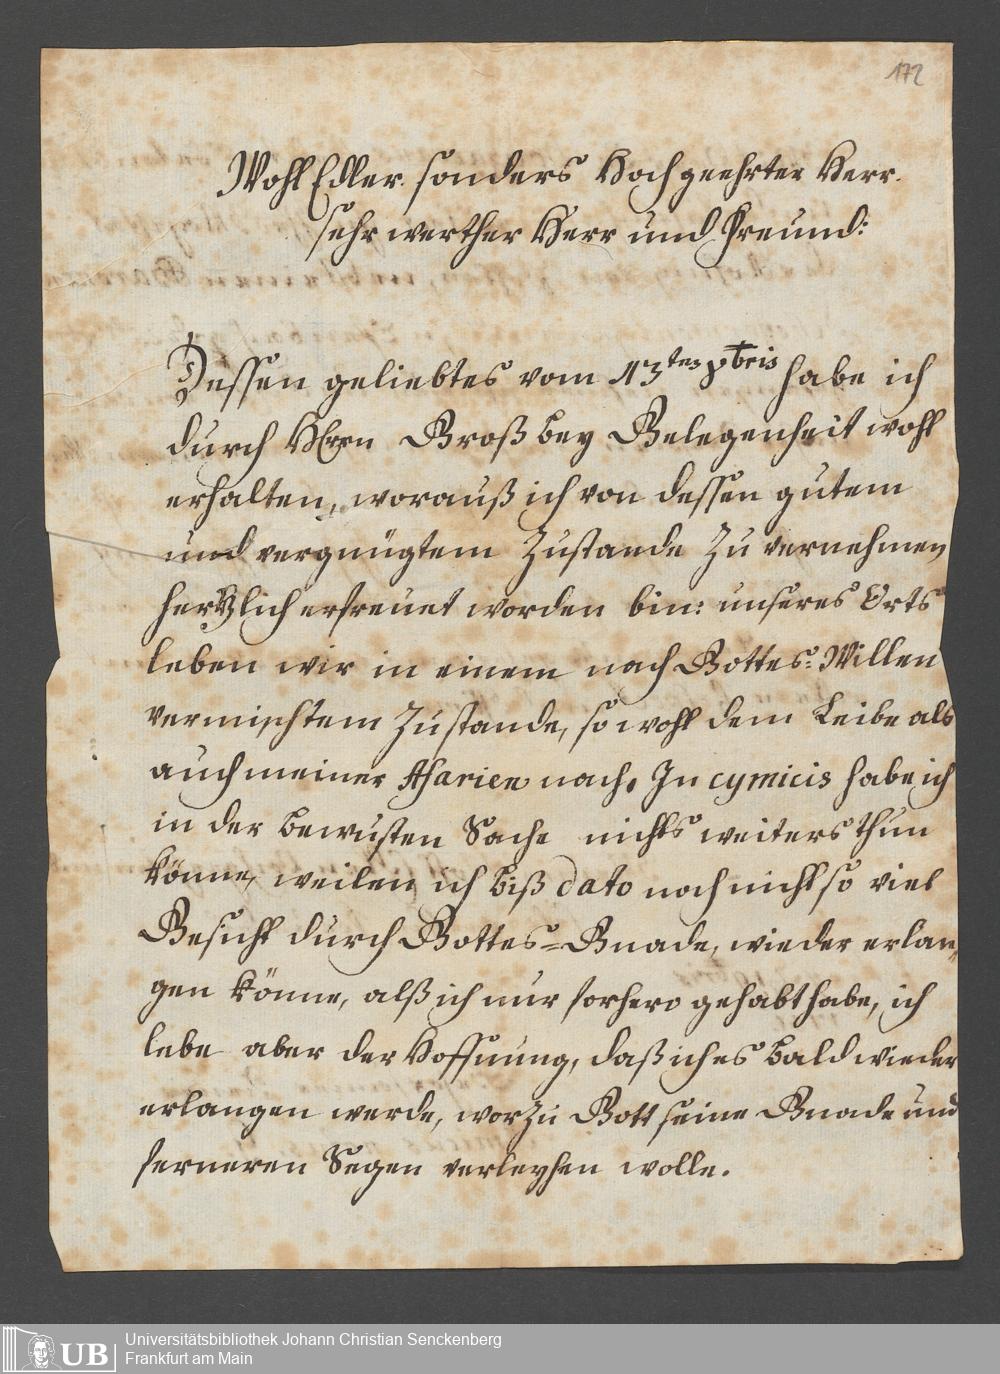 172
WohlEdler. sonders Hochgeehrter Herr.
sehr werther Herr und Freund:
Dessen geliebtes vom 13ten habe ich
durch Herrn Groß bey Gelegenheit wohl
erhalten, worauß ich von dessen gutem
und vergnügtem Zustande Zu vernehmen
hertzlich erfreuet worden bin: unseres Orts
leben wir in einem nach Gottes: Willen
vermischtem Zustande, so wohl dem Leibe als
auch meiner nach. In cymicis habe ich
in der bewusten Sache nichts weiters thun
könne, weilen ich biß dato noch nicht so viel
Gesicht durch Gottes=Gnade, wieder erlan„
gen könne, alß ich nur vorhero gehabt habe, ich
lebe aber der Hoffnung, daß ich es bald wieder
erlangen werde, worzu Gott seine Gnade und
ferneren Segen verleyhen wolle.
UB
Universitätsbibliothek Johann Christian Senckenberg
Frankfurt am Main